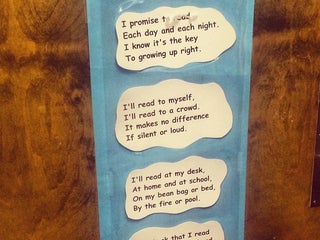 I promise to read
Each day and each night.
I know it's the key
To growing up right.
I'll read to myself,
I'll read to a crowd.
It makes no difference
If silent or loud.
I'll read at my desk,
At home and at school,
On my bean bag or bed,
By the fire or pool.
that I read